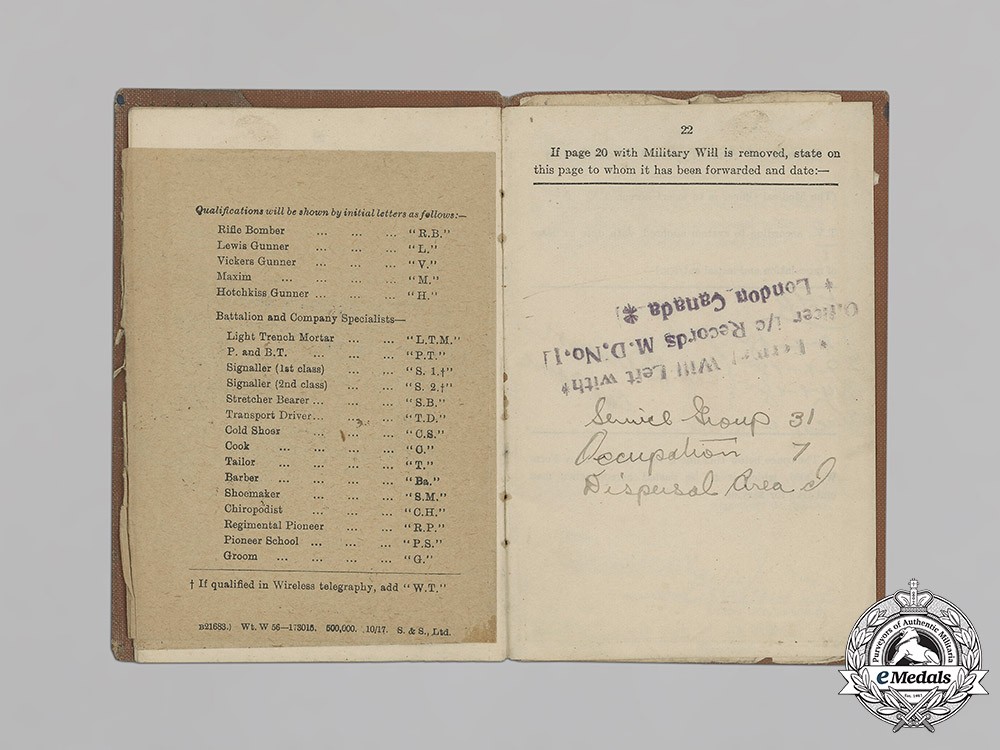 Qualifications will be shown by initial letters as follows:—
Rifle Bomber ... ... ... "R.B."
Lewis Gunner ... ... ... "L."
Vickers Gunner ... ... ... "V."
Maxim ... ... ... ... "M."
Hotchkiss Gunner ... ... ... "H."
Battalion and Company Specialists—
Light Trench Mortar ... ... "L.T.M."
P. and B.T. ... ... ... "P.T."
Signaller (1st class) ... ... "S. 1.†"
Signaller (2nd class) ... ... "S. 2.†"
Stretcher Bearer ... ... ... "S.B."
Transport Driver... ... ... "T.D."
Cold Shoer ... ... ... "C.S."
Cook ... ... ... ... "C."
Tailor ... ... ... ... "T."
Barber ... ... ... ... "Ba."
Shoemaker ... ... ... "S.M."
Chiropodist ... ... ... "C.H."
Regimental Pioneer ... ... "R.P."
Pioneer School ... ... ... "P.S."
Groom ... ... ... ... "G."
† If qualified in Wireless telegraphy, add "W.T."
B21683.) Wt. W 56—173015. 500,000. 10/17. S. & S., Ltd.
22
If page 20 with Military Will is removed, state on
this page to whom it has been forwarded and date:—
Will Left with
Officer i/c Records M.D.No.1
* London Canada *
Service Group 31
Occupation 7
Dispersal Area I
Purveyors of Authentic Militaria
eMedals